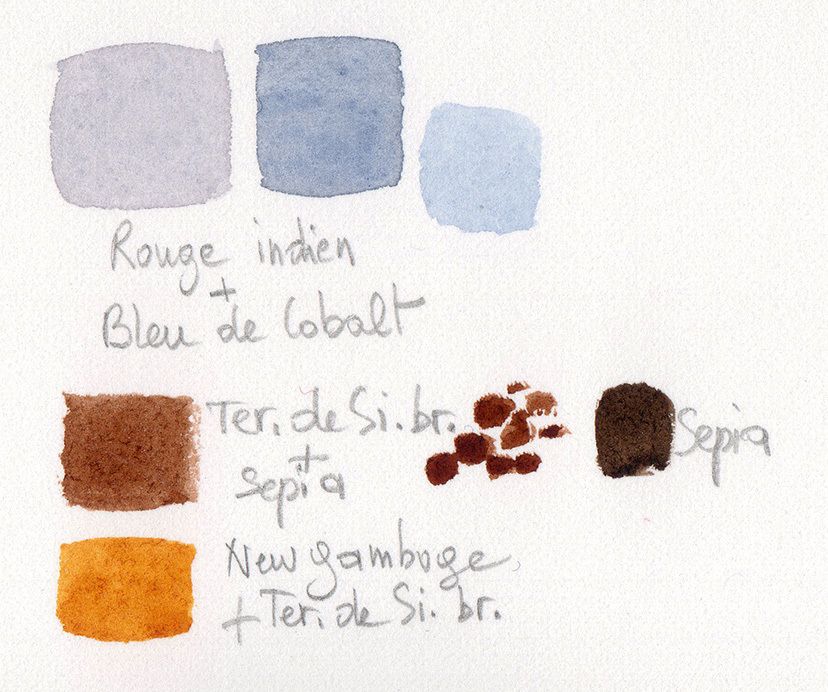 Rouge indien
+
Bleu de Cobalt
Ter. de Si. br.
+
sepia
Sepia
New gamboge
+ Ter. de Si. br.